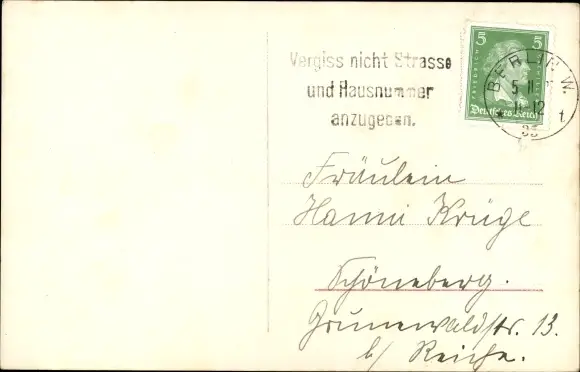 Vergiss nicht Strasse
und Hausnummer
anzugeben.
5 5
FRIEDRICH
Deutsches Reich
BERLIN W.
5. 11.
11-12
t
35
Fräulein
Hanni Krüge
Schöneberg.
Grunewaldstr. 13.
b/ Reiche.